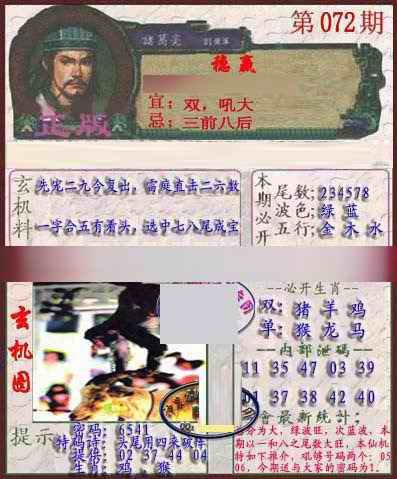 第072期
諸葛亮
稳赢
宜：双，吼大
忌：三前八后
正版
玄机料
先宠二九今复出，雷庭直击二六数
一字合五有看头，选中七八尾成宝
本期必开
尾数；234578
波色；绿 蓝
五行；金 木 水
玄机图
必开生肖
双：猪 羊 鸡
单：猴 龙 马
内部泄码
11 35 47 03 39
37 38 42 40
會最新統计：
分为大，绿波旺，次蓝波、本
期以一和八之尾数大旺，本仙机
特如下推介，吼够号码两个：05
06，今期送与大家的密码为1.
提示
密码：6541
特码诗：头尾用四来破停
提倍：02 37 44 04
生肖：鸡，猴